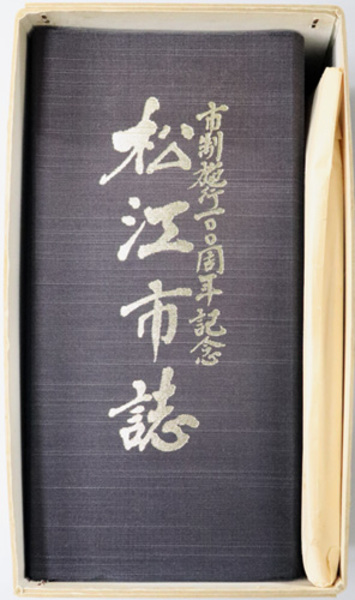 市制施行一〇〇周年記念
松江市誌